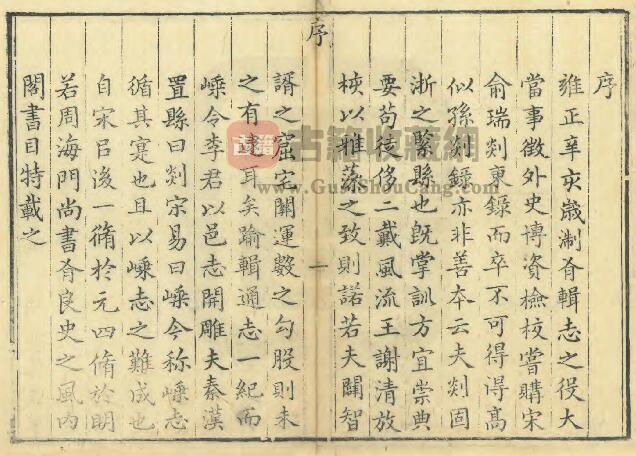 序
雍正辛亥嵗制脩輯志之役大
當事徵外史博資檢校嘗購宋
俞瑞剡東錄而卒不可得得高
似孫剡錄亦非善本云夫剡固
浙之緊縣也旣掌訓方宜崇典
要苟徒侈二戴風流王謝清放
梜以雅蒸之致則諾若夫闢智
序
一
諝之窟宅闡運數之勾股則未
之有建耳矣踰輯通志一紀而
嵊令李君以邑志開雕夫秦漢
置縣曰剡宋易曰嵊今称嵊志
循其寔也且以嵊志之難成也
自宋吕後一脩於元四脩於明
若周海門尚書脊良史之風内
閣書目特載之
古籍收藏網
www.GuJiShouCang.com
古籍